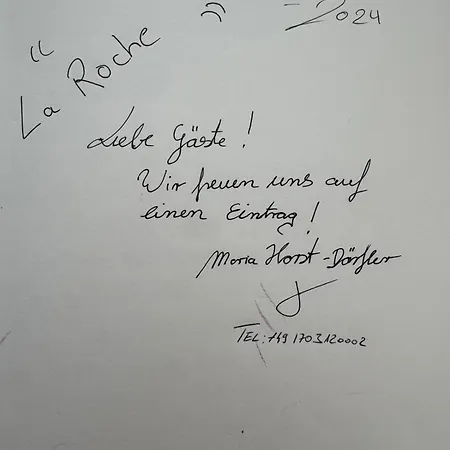 " La Roche " - 2024
Liebe Gäste!
Wir freuen uns auf
einen Eintrag!
Maria Horst-Dörfler
TEL: +49 170 3120002